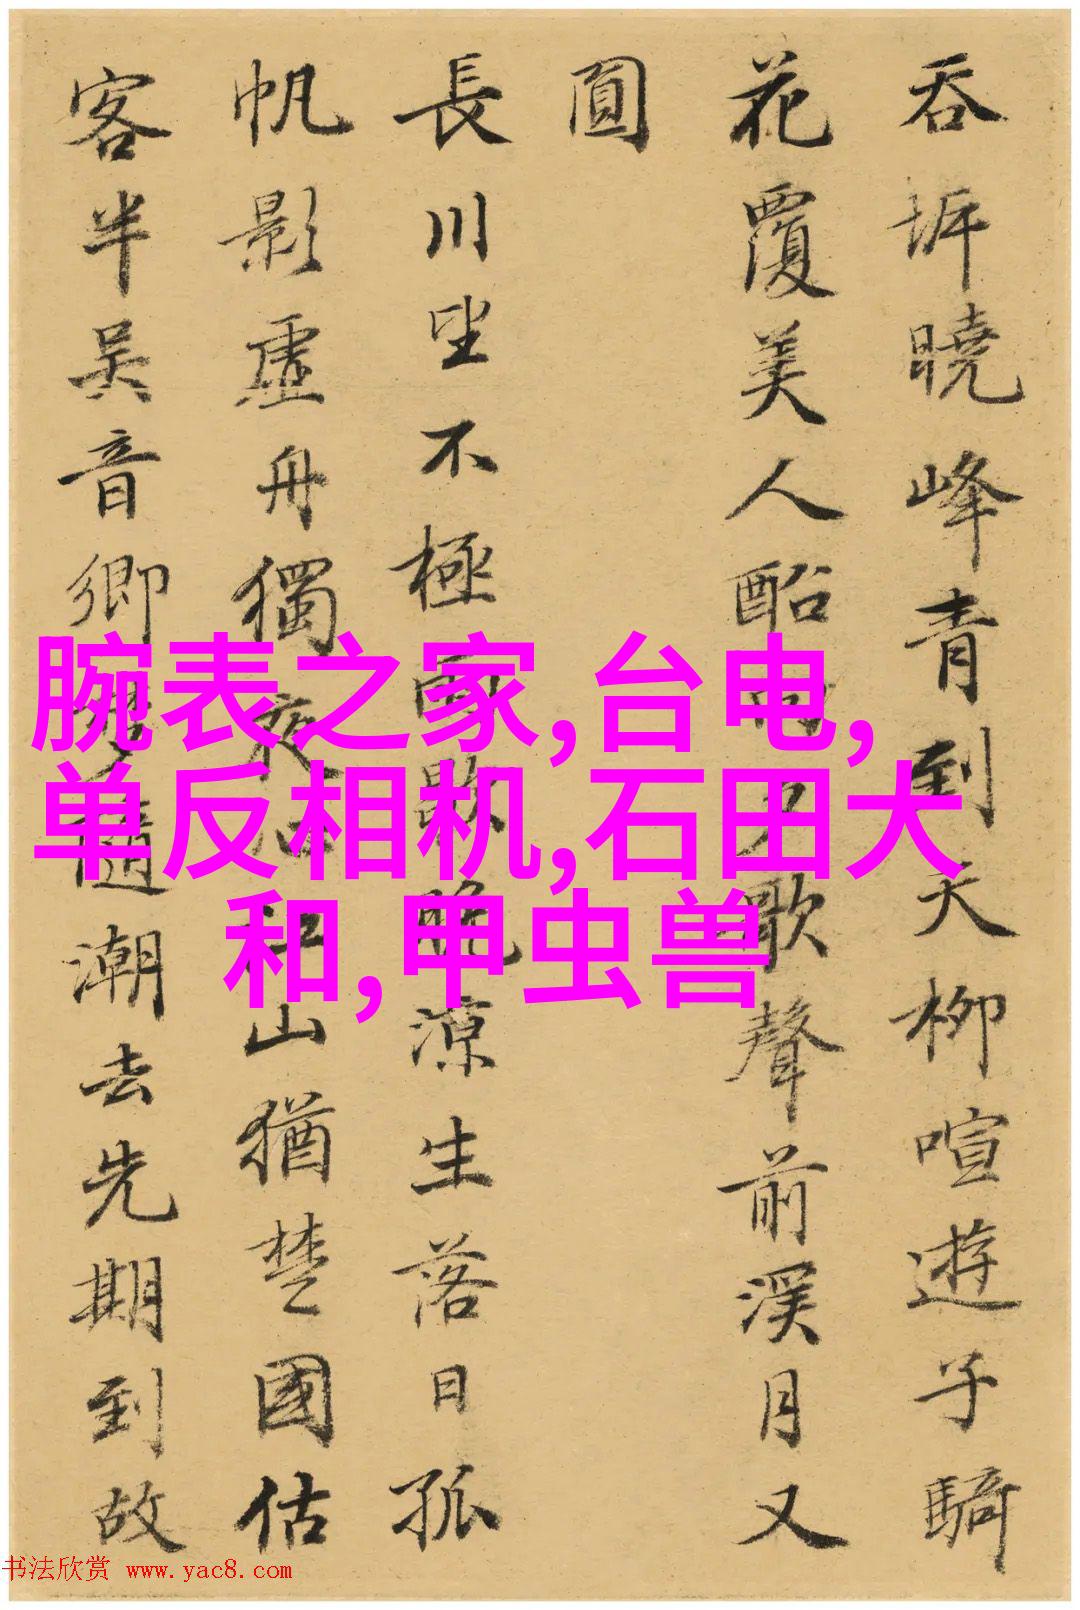 吞圻曉峰青到天柳喧遊子騎
花覆美人酩歌聲前溪月又
圓
長川坐不極晚涼生落日孤
帆影虛舟獨夜山猶楚國估
客半吴音鄉隨潮去先期到故
腕表之家,台电,
单反相机,石田大
和,甲虫兽
书法欣赏 www.yac8.com